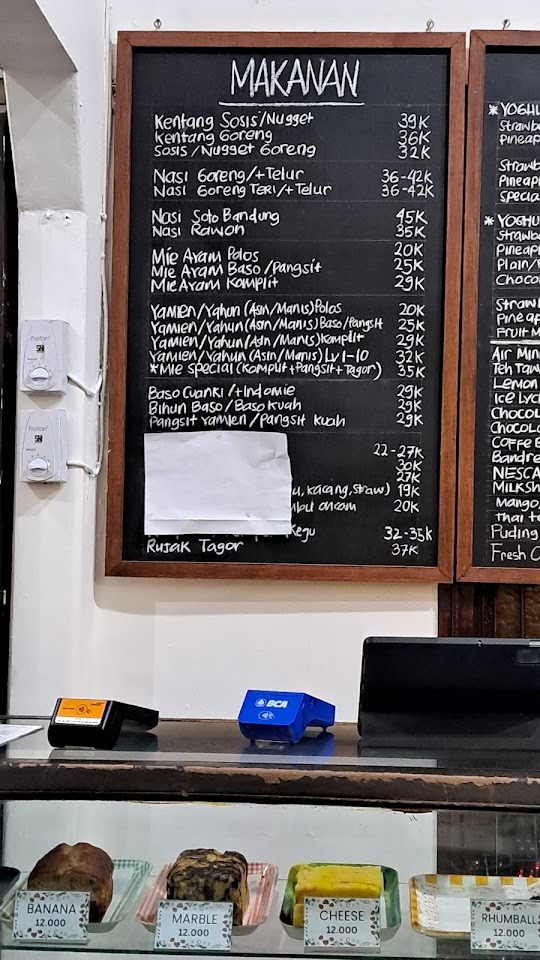 MAKANAN
Kentang Sosis/Nugget 39K
Kentang Goreng 36K
Sosis/Nugget Goreng 32K
Nasi Goreng/+Telur 36-42K
Nasi Goreng Teri/+Telur 36-42K
Nasi Soto Bandung 45K
Nasi Rawon 35K
Mie Ayam Polos 20K
Mie Ayam Baso/Pangsit 25K
Mie Ayam Komplit 29K
Yamien/Yahun (Asin/Manis) Polos 20K
Yamien/Yahun (Asin/Manis) Baso/Pangsit 25K
Yamien/Yahun (Asin/Manis) Komplit 29K
Yamien/Yahun (Asin/Manis) Lv 1-10 32K
*Mie Special (Komplit+Pangsit+Tagor) 35K
Baso Cuanki/+Indomie 29K
Bihun Baso/Baso Kuah 29K
Pangsit Yamien/Pangsit Kuah 29K
22-27K
30K
27K
u, Kacang, Straw) 19K
oncom 20K
Kegu 32-35K
Rujak Tagor 37K
*YOGHU
Strawbe
Pineap
Strawb
Pineap
Specia
*YOGHU
Strawb
Pineap
Plain/
Choco
Strawl
Pineap
Fruit M
Air Min
Teh Taw
Lemon
Ice Lyc
Chocol
Chocola
Coffe B
Bandre
NESCA
MILKSH
Mango,
Thai te
Puding
Fresh O
Protan
Protan
BCA
BANANA
12.000
MARBLE
12.000
CHEESE
12.000
RHUMBALL
12.000